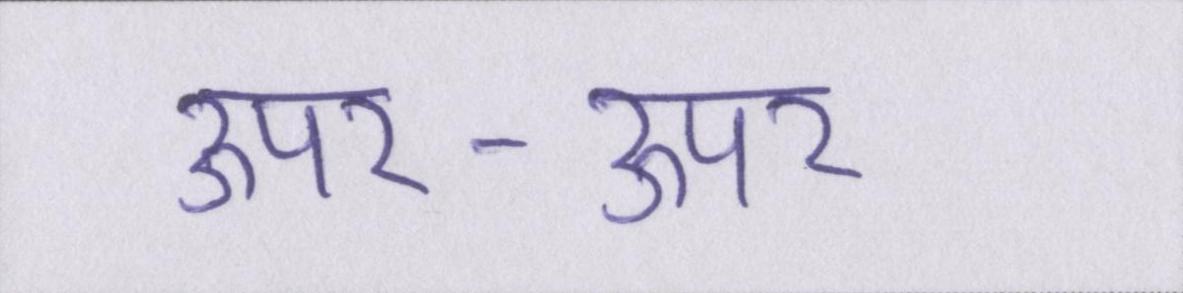 ऊपर-ऊपर